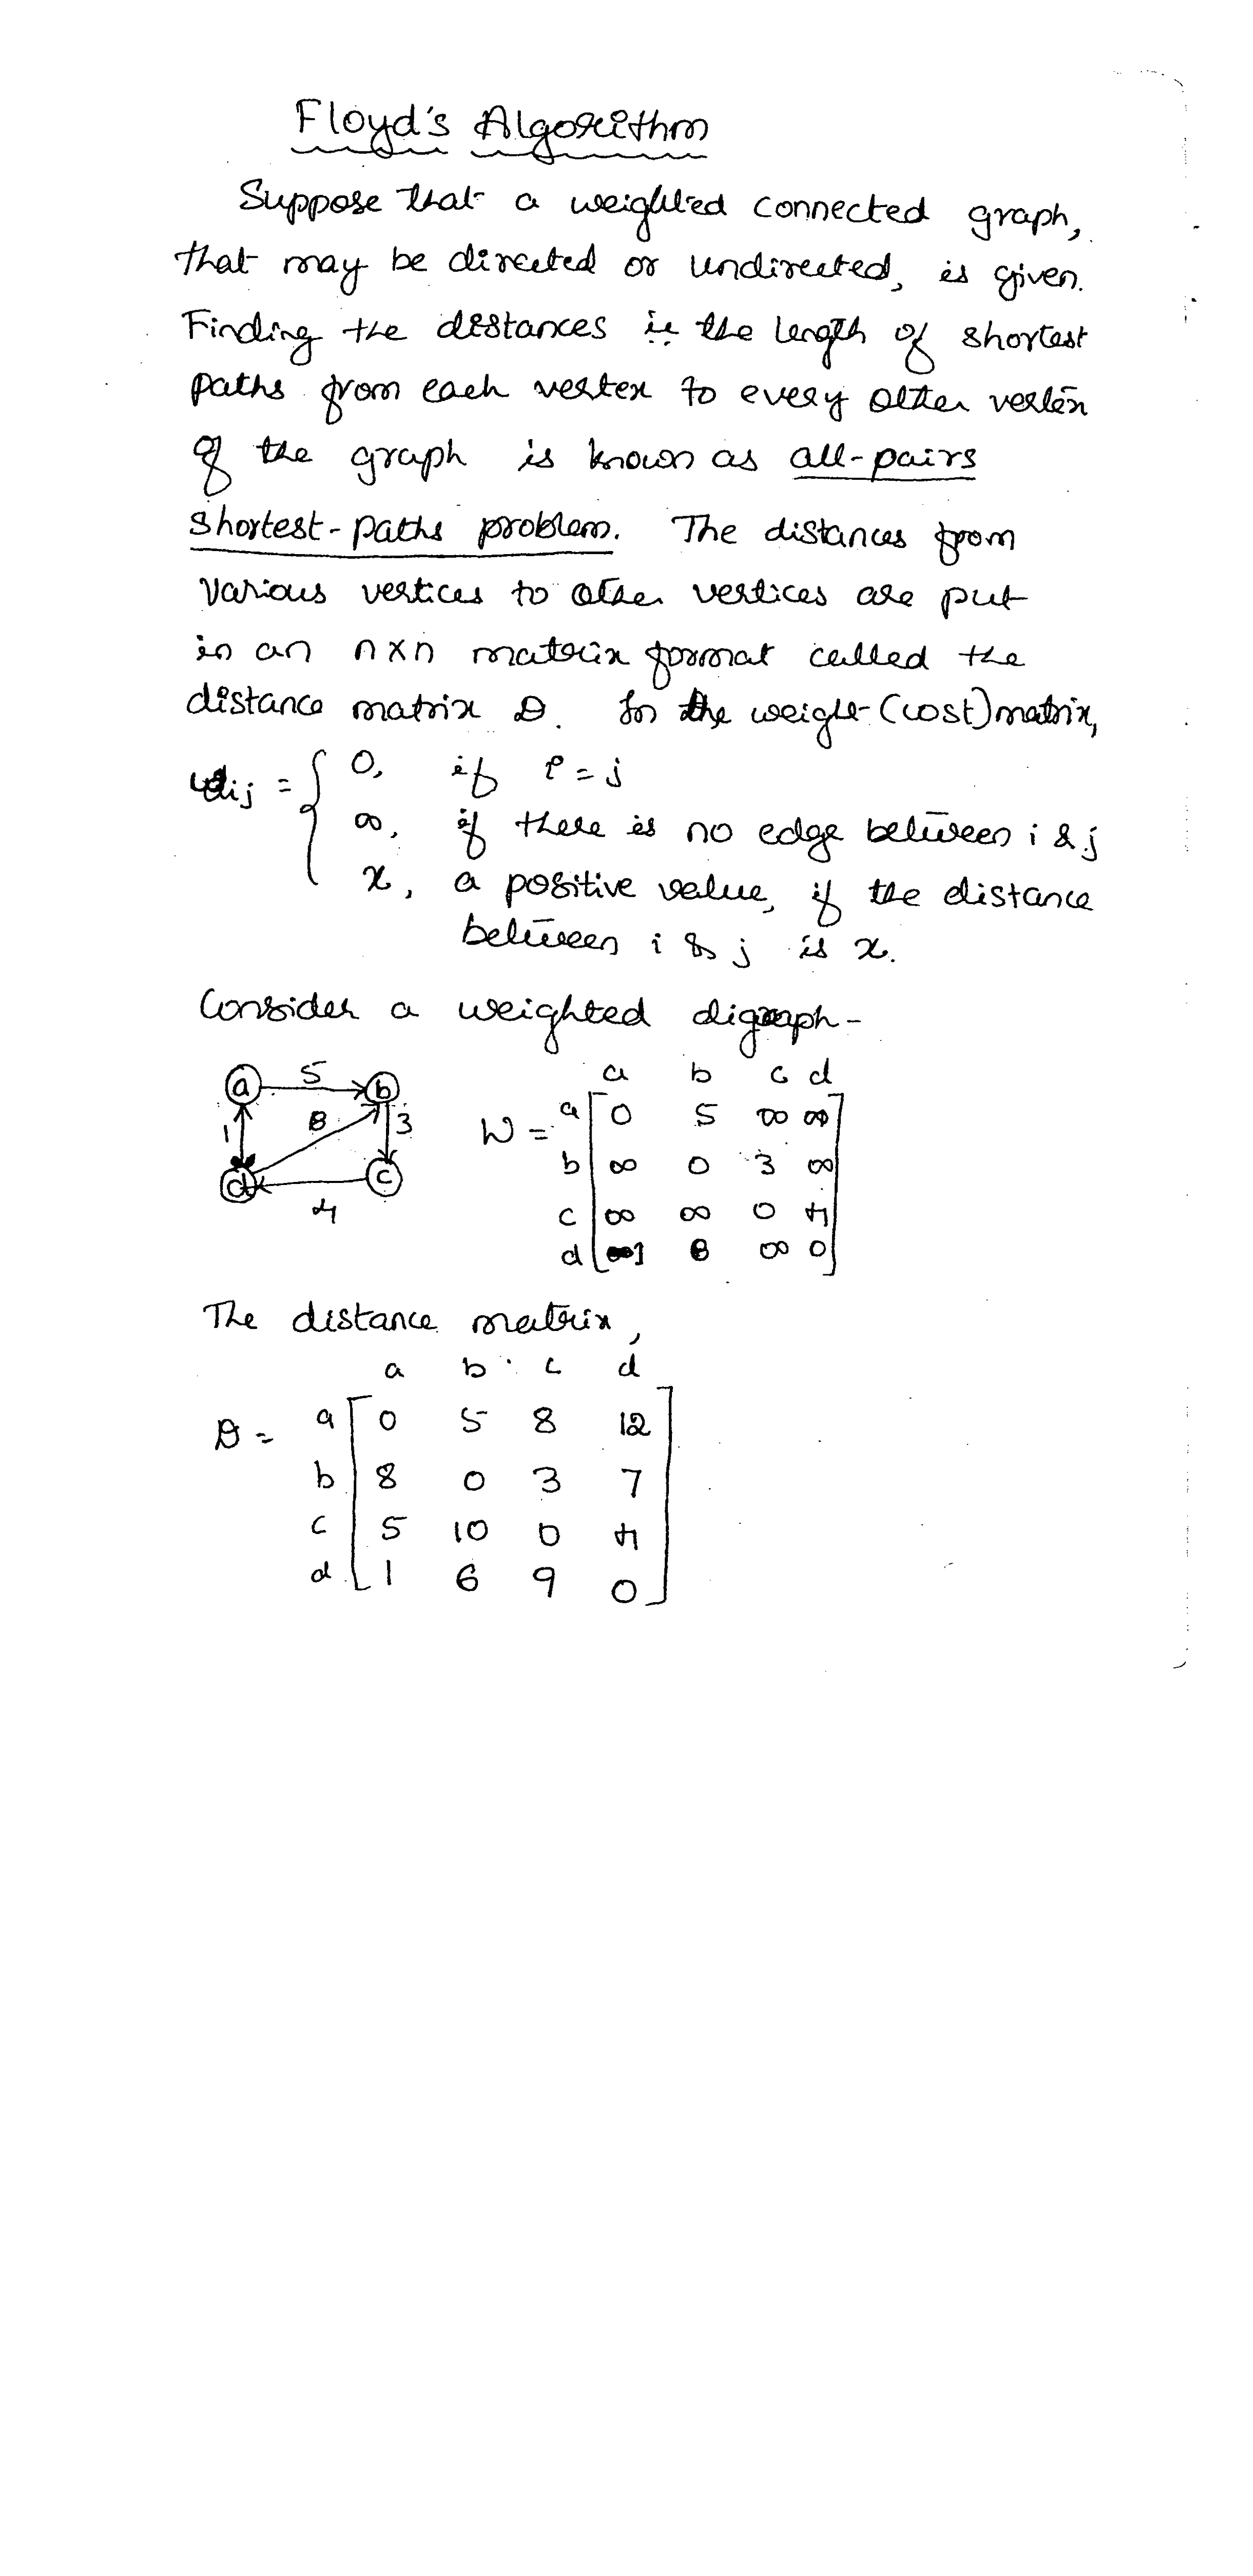 Floyd's Algorithm
Suppose that a weighted connected graph,
that may be directed or undirected, is given.
Finding the distances ie the length of shortest
paths from each vertex to every other vertex
of the graph is known as all-pairs
shortest-paths problem. The distances from
various vertices to other vertices are put
in an n×n matrix format called the
distance matrix D. In the weight (cost) matrix,
wij = { 0, if i = j
∞, if there is no edge between i & j
x, a positive value, if the distance
between i & j is x.
Consider a weighted digraph -
a 5 b
1 8 3
d 4 c
a b c d
W = a 0 5 ∞ ∞
b ∞ 0 3 ∞
c ∞ ∞ 0 4
d 1 8 ∞ 0
The distance matrix,
a b c d
D = a 0 5 8 12
b 8 0 3 7
c 5 10 0 4
d 1 6 9 0